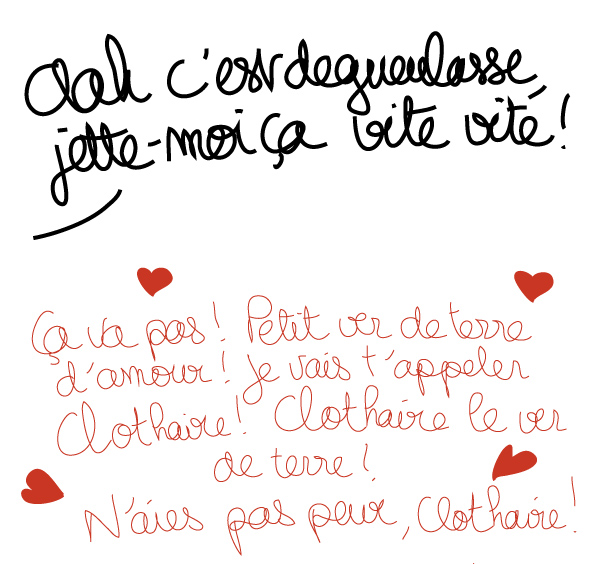 Aah c'est degueulasse,
jette-moi ça vite vite!
Ça va pas! Petit ver de terre
d'amour! Je vais t'appeler
Clothaire! Clothaire le ver
de terre!
N'aies pas peur, Clothaire!